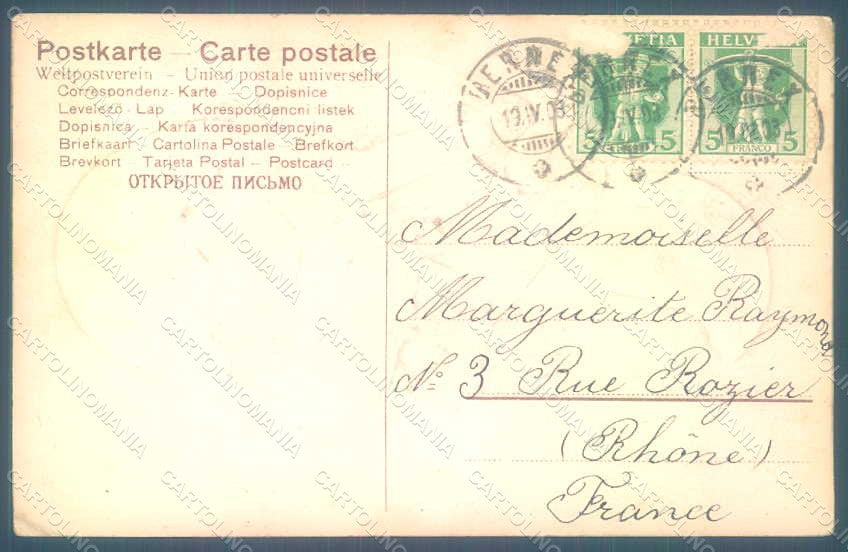 Postkarte — Carte postale
Weltpostverein – Union postale universelle
Correspondenz-Karte – Dopisnice
Levelező-Lap – Korespondencni listek
Dopisnica – Karta korespondencyjna
Briefkaart – Cartolina Postale – Brefkort
Brevkort – Tarjeta Postal – Postcard
ОТКРЫТОЕ ПИСЬМО
HELV
5 5
5 FRANCO 5
Mademoiselle
Marguerite Raymond
No 3 Rue Rozier
(Rhône)
France
CARTOLINOMANIA